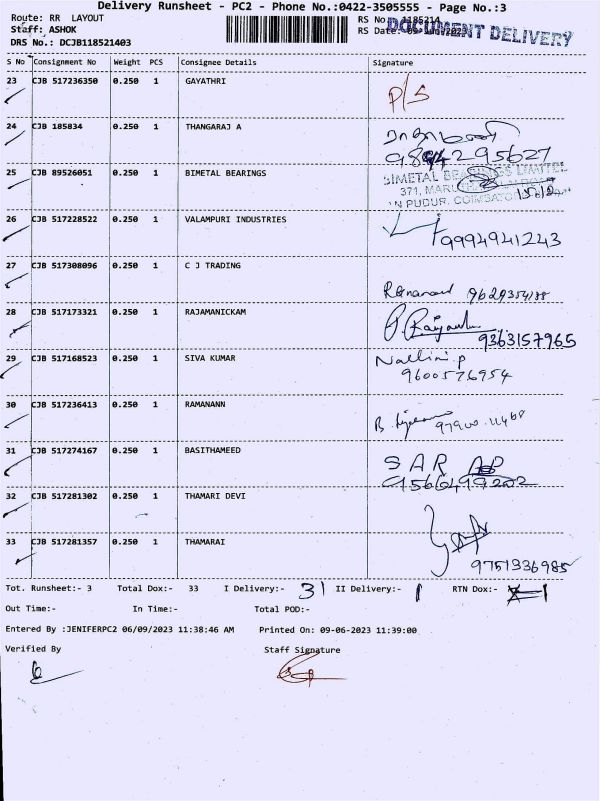 Delivery Runsheet - PC2 - Phone No.:0422-3505555 - Page No.:3
Route: RR LAYOUT
RS No. 1185214
Staff: ASHOK
RS Date: 09-Jun-2023
DOCUMENT DELIVERY
DRS No.: DCJB118521403
S No Consignment No Weight PCS Consignee Details Signature
23 CJB 517236350 0.250 1 GAYATHRI P/S
24 CJB 185834 0.250 1 THANGARAJ A
9894295627
25 CJB 89526051 0.250 1 BIMETAL BEARINGS
BIMETAL BEARINGS LIMITED
371, MARU
N PUDUR, COIMBATO
26 CJB 517228522 0.250 1 VALAMPURI INDUSTRIES
9994941243
27 CJB 517308096 0.250 1 C J TRADING
9629354188
28 CJB 517173321 0.250 1 RAJAMANICKAM
9363157965
29 CJB 517168523 0.250 1 SIVA KUMAR Nallini.p
9600576954
30 CJB 517236413 0.250 1 RAMANANN
31 CJB 517274167 0.250 1 BASITHAMEED SAR
9566499202
32 CJB 517281302 0.250 1 THAMARI DEVI
33 CJB 517281357 0.250 1 THAMARAI
9751336985
Tot. Runsheet:- 3 Total Dox:- 33 I Delivery:- 31 II Delivery:- 1 RTN Dox:- 1
Out Time:- In Time:- Total POD:-
Entered By :JENIFERPC2 06/09/2023 11:38:46 AM Printed On: 09-06-2023 11:39:00
Verified By Staff Signature